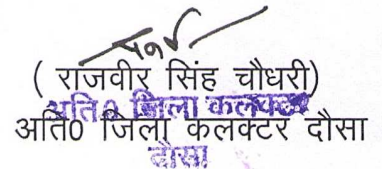 ( राजवीर सिंह चौधरी)
अति0 जिला कलक्टर
अति0 जिला कलक्टर दौसा
दौसा